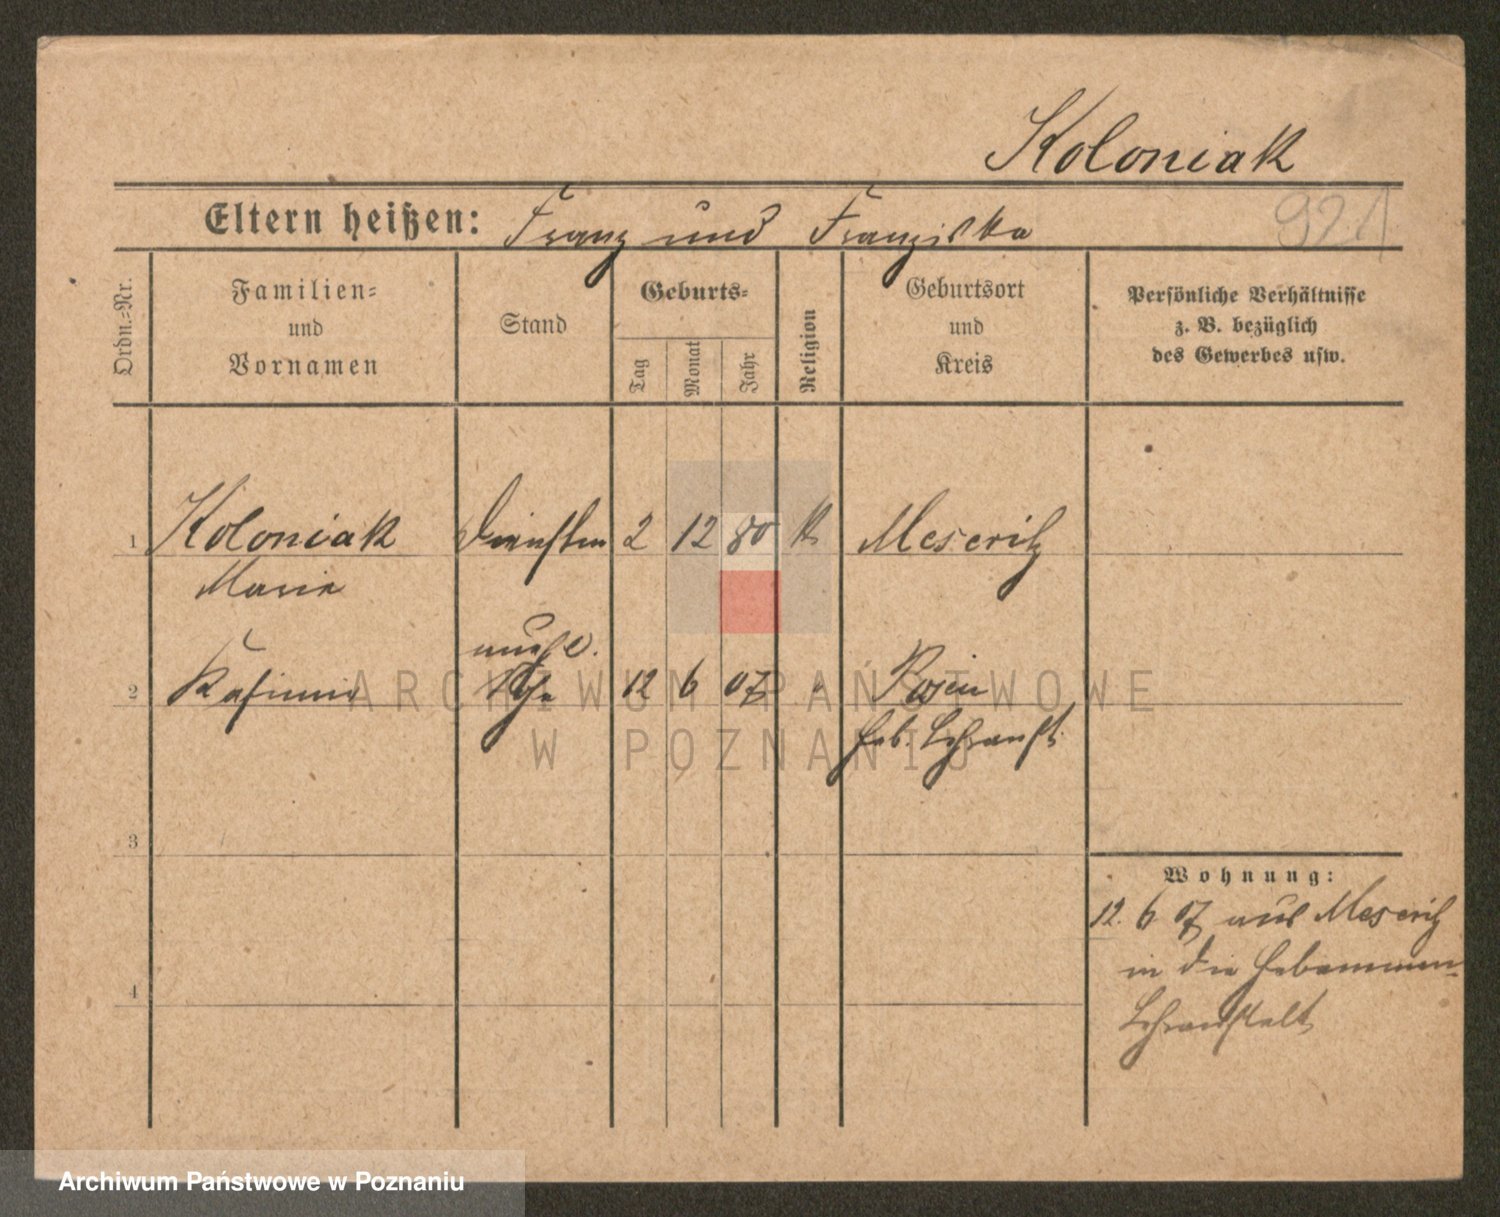 Koloniak
Eltern heißen: Franz und Franziska
921
Ordn.-Nr.
Familien-
und
Vornamen
Stand
Geburts-
Tag
Monat
Jahr
Religion
Geburtsort
und
Kreis
Persönliche Verhältnisse
z. B. bezüglich
des Gewerbes usw.
1 Koloniak 2 12 80 k Meseritz
Marie
unehel.
2 Kasimir 12 6 07 " Posen
Heb. Lehranst.
3
Wohnung:
12. 6 07 aus Meseritz
in die Hebammen-
Lehranstalt
4
ARCHIWUM PAŃSTWOWE
W POZNANIU
Archiwum Państwowe w Poznaniu